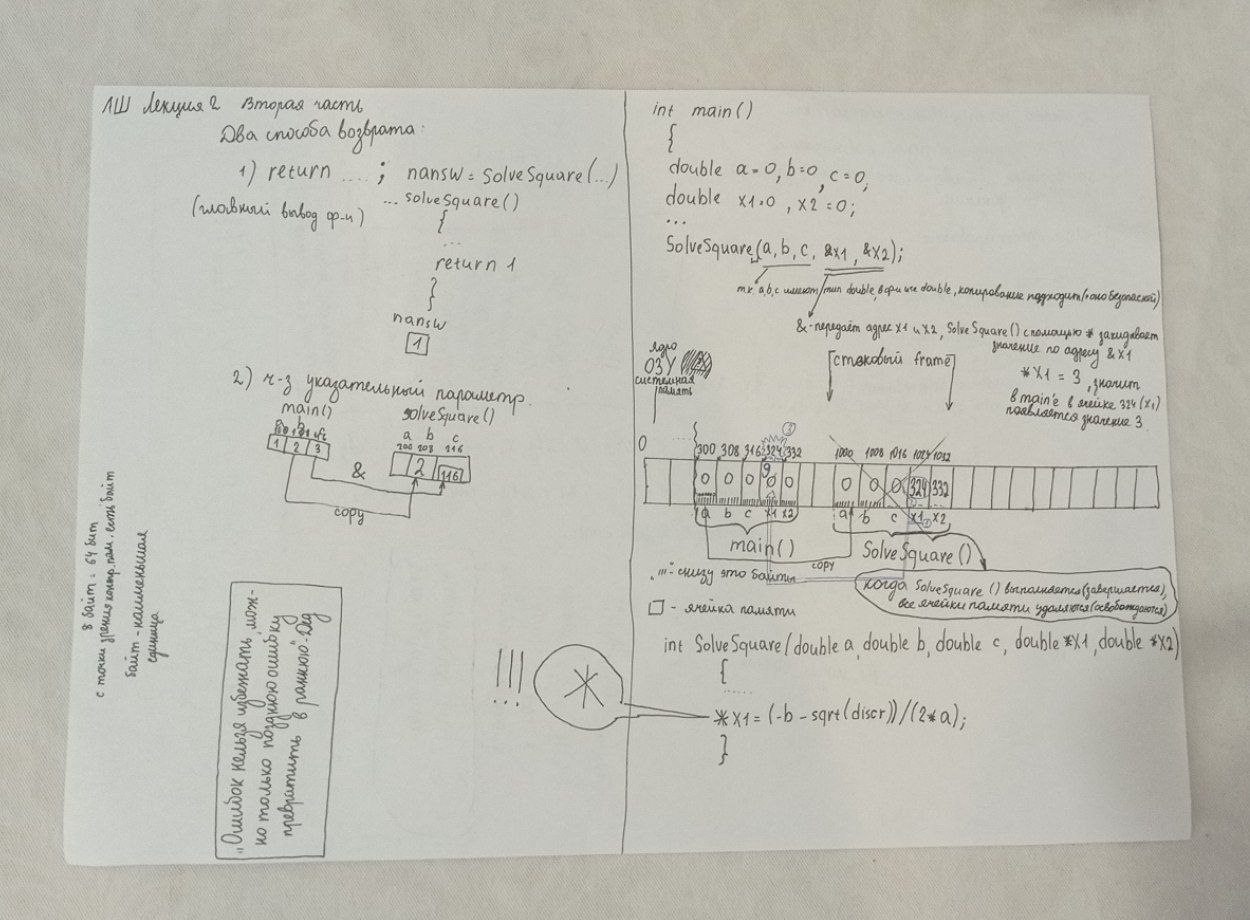 ЛШ Лекция 2 Вторая часть
Два способа возврата:
1) return ....; nansw = SolveSquare(...)
(главный вывод ф-и)
... solveSquare()
{
...
return 1
}
nansw
1
2) ч-з указательный параметр.
main()
solveSquare()
a b c
200 208 216
1 2 3
&
2 116
copy
8 байт = 64 бит
с точки зрения компр. пам. есть байт
байт - наименьшая
единица
"Ошибок нельзя избежать, мож-
но только позднюю ошибку
превратить в раннюю" - Дед
!!!
...
*
int main()
{
double a=0, b=0, c=0;
double x1=0, x2=0;
...
SolveSquare(a, b, c, &x1, &x2);
т.к. a,b,c имеют тип double, в ф-и же double, копирование подходит (+оно безопасней)
& - передаёт адрес x1 и x2, SolveSquare() с помощью * закидывает
значение по адресу &x1
*x1 = 3, значит
в main'е в ячейке 324 (x1)
появляется значение 3.
ядро
ОЗУ
системная
память
стековый frame
0 300 308 316 324 332 1000 1008 1016 1024 1032
0 0 0 9 0 0 0 0 0 324 332
a b c x1 x2 a b c x1 x2
main()
copy
SolveSquare()
"''' - снизу это байты
□ - ячейка памяти
когда SolveSquare() выполняется (завершается),
все ячейки памяти удаляются (освобождаются)
int SolveSquare(double a, double b, double c, double *x1, double *x2)
{
......
*x1 = (-b - sqrt(discr))/(2*a);
}